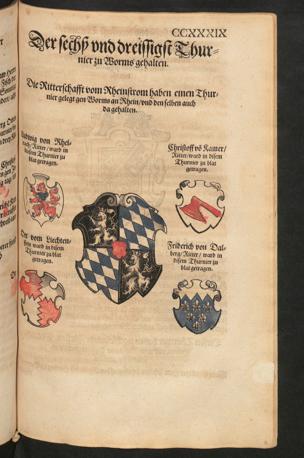 CCXXXIX
Der sechß vnd dreissigst Thur-
nier zu Worms gehalten.
Die Ritterschafft vom Rheinstrom haben einen Thur-
nier gelegt gen Worms an Rhein/ vnd den selben auch
da gehalten.
Ludwig von
Ritter/ ward in
disem Thurnier zu
blat getragen.
Christoff vō
Ritter/ ward in disem
Thurnier zu blat
getragen.
vom Liechten-
ward in disem
Thurnier zu blat
getragen.
Friderich von Dal-
berg/ Ritter/ ward in
disem Thurnier zu
blat getragen.